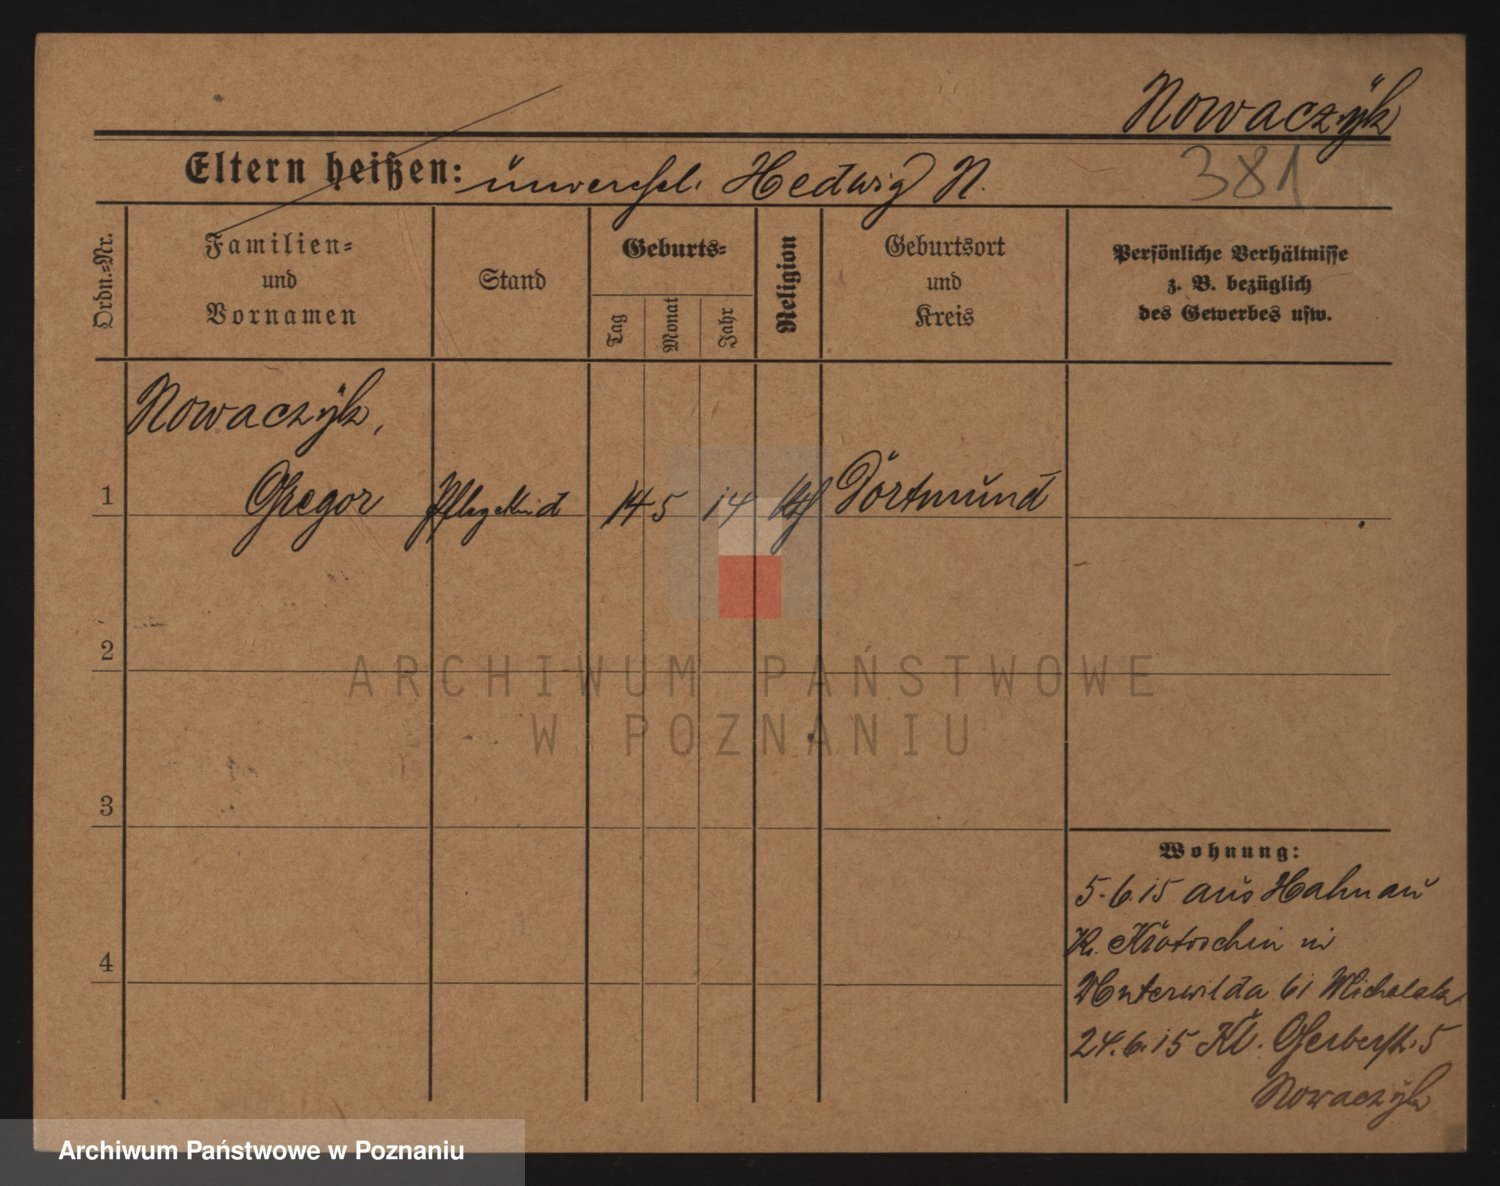 Nowaczÿk
Eltern heißen: unverehel. Hedwig N.
381
Ordn.=Nr.
Familien=
und
Vornamen
Stand
Geburts=
Tag
Monat
Jahr
Religion
Geburtsort
und
Kreis
Persönliche Verhältnisse
z. B. bezüglich
des Gewerbes usw.
Nowaczÿk,
1 Gregor Pflegekind 14 5 14 kth Dortmund
2
3
4
ARCHIWUM PAŃSTWOWE
W POZNANIU
Wohnung:
5.6.15 aus Hahnau
Kr. Krotoschin in
Unterwilda 61 Michalak
24.6.15 Kl. Gerberstr. 5
Nowaczÿk
Archiwum Państwowe w Poznaniu